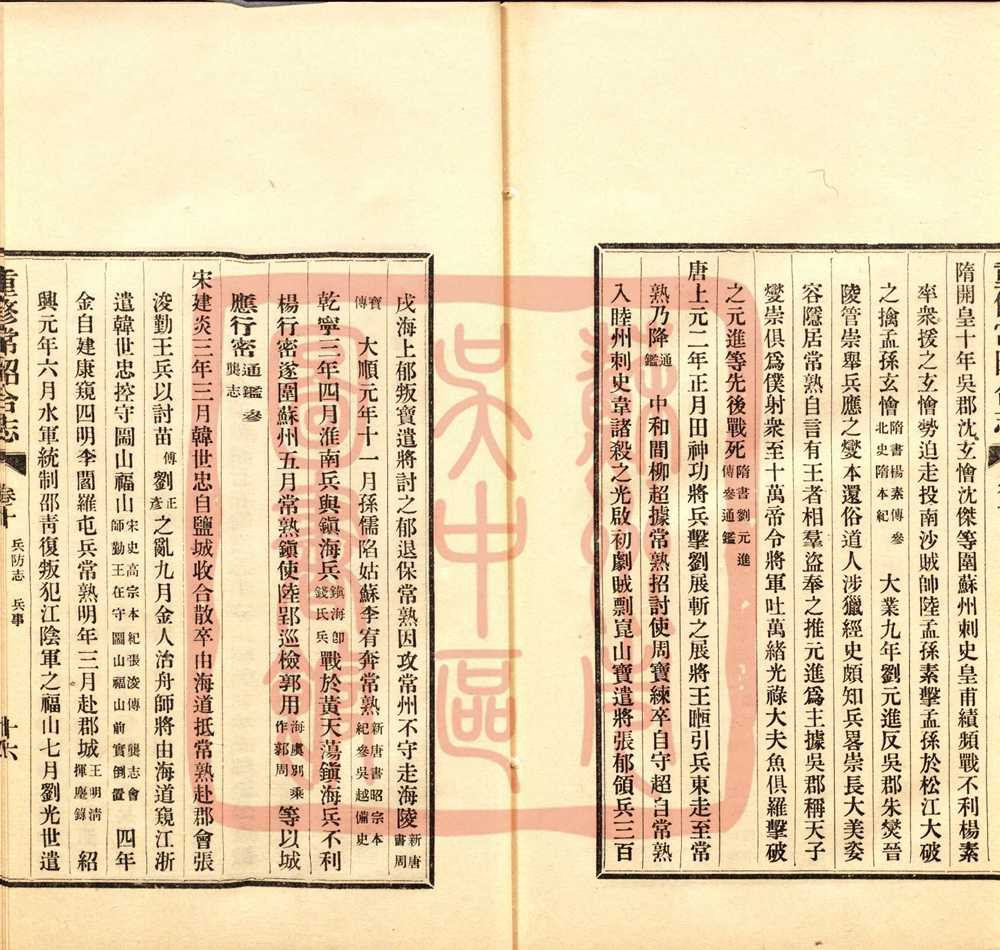 隋開皇十年吳郡沈玄懀沈傑等圍蘇州刺史皇甫績頻戰不利楊素
率衆援之玄懀勢迫走投南沙賊帥陸孟孫素擊孟孫於松江大破
之擒孟孫玄懀隋書楊素傳參北史隋本紀　大業九年劉元進反吳郡朱燮晉
陵管崇舉兵應之燮本還俗道人涉獵經史頗知兵畧崇長大美姿
容隱居常熟自言有王者相羣盜奉之推元進爲主據吳郡稱天子
燮崇俱爲僕射衆至十萬帝令將軍吐萬緒光祿大夫魚俱羅擊破
之元進等先後戰死隋書劉元進傳參通鑑
唐上元二年正月田神功將兵擊劉展斬之展將王暅引兵東走至常
熟乃降通鑑　中和間柳超據常熟招討使周寶練卒自守超自常熟
入睦州刺史韋諸殺之光啟初劇賊剽崑山寶遣將張郁領兵三百
戍海上郁叛寶遣將討之郁退保常熟因攻常州不守走海陵新唐書周
寶傳　大順元年十一月孫儒陷姑蘇李宥奔常熟新唐書昭宗本紀參吳越備史
乾寧三年四月淮南兵與鎭海兵鎭海卽錢氏兵戰於黃天蕩鎭海兵不利
楊行密遂圍蘇州五月常熟鎭使陸郢巡檢郭用海虞別乘作郭周等以城
應行密通鑑參龔志
宋建炎三年三月韓世忠自鹽城收合散卒由海道抵常熟赴郡會張
浚勤王兵以討苗傅劉正彥之亂九月金人治舟師將由海道窺江浙
遣韓世忠控守圌山福山宋史高宗本紀張浚傳龔志會師勤王在守圌山福山前實倒置　四年
金自建康窺四明李閻羅屯兵常熟明年三月赴郡城王明淸揮麈錄　紹
興元年六月水軍統制邵靑復叛犯江陰軍之福山七月劉光世遣
重修常昭合志
卷十
兵防志　兵事
十六